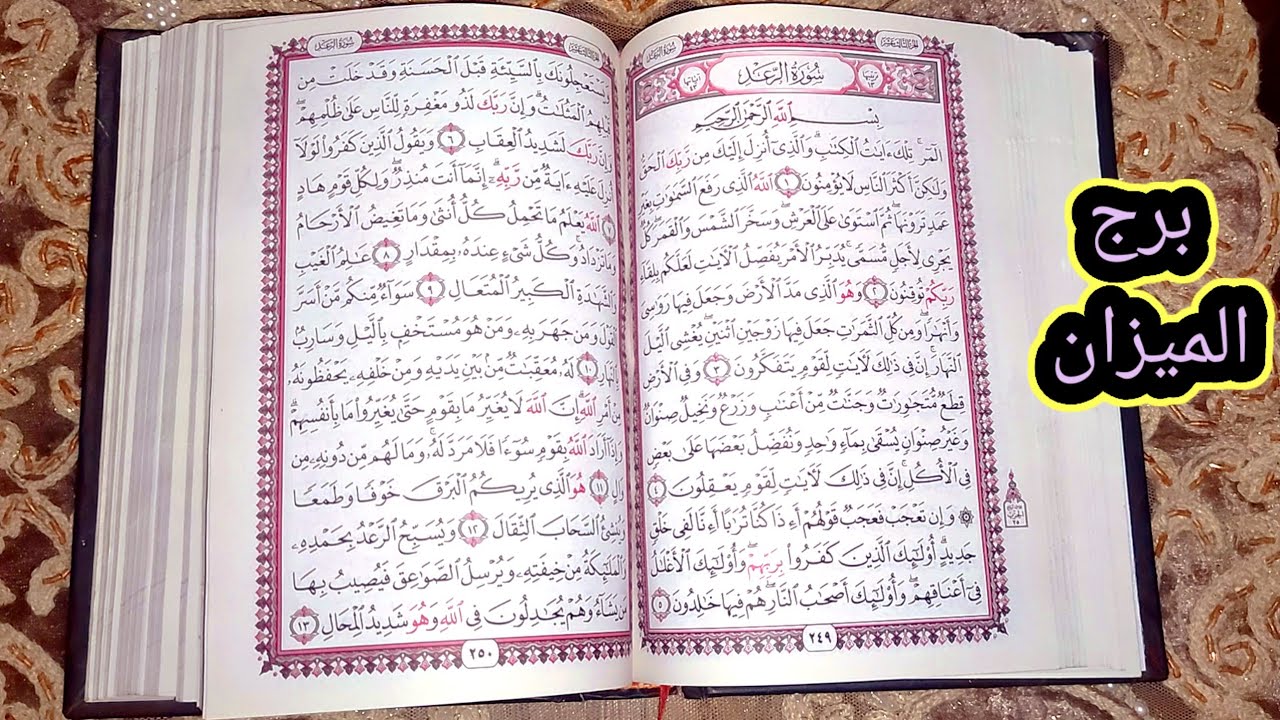 سُورَةُ الرَّعْدِ
سُورَةُ الرَّعْدِ
بِسْمِ اللَّهِ الرَّحْمَٰنِ الرَّحِيمِ
الٓمٓر ۚ تِلْكَ ءَايَٰتُ ٱلْكِتَٰبِ ۗ وَٱلَّذِىٓ أُنزِلَ إِلَيْكَ مِن رَّبِّكَ ٱلْحَقُّ
وَلَٰكِنَّ أَكْثَرَ ٱلنَّاسِ لَا يُؤْمِنُونَ ١ ٱللَّهُ ٱلَّذِى رَفَعَ ٱلسَّمَٰوَٰتِ بِغَيْرِ
عَمَدٍ تَرَوْنَهَا ۖ ثُمَّ ٱسْتَوَىٰ عَلَى ٱلْعَرْشِ ۖ وَسَخَّرَ ٱلشَّمْسَ وَٱلْقَمَرَ ۖ كُلٌّ
يَجْرِى لِأَجَلٍ مُّسَمًّى ۚ يُدَبِّرُ ٱلْأَمْرَ يُفَصِّلُ ٱلْءَايَٰتِ لَعَلَّكُم بِلِقَآءِ
رَبِّكُمْ تُوقِنُونَ ٢ وَهُوَ ٱلَّذِى مَدَّ ٱلْأَرْضَ وَجَعَلَ فِيهَا رَوَٰسِىَ
وَأَنْهَٰرًا ۖ وَمِن كُلِّ ٱلثَّمَرَٰتِ جَعَلَ فِيهَا زَوْجَيْنِ ٱثْنَيْنِ ۖ يُغْشِى ٱلَّيْلَ
ٱلنَّهَارَ ۚ إِنَّ فِى ذَٰلِكَ لَءَايَٰتٍ لِّقَوْمٍ يَتَفَكَّرُونَ ٣ وَفِى ٱلْأَرْضِ
قِطَعٌ مُّتَجَٰوِرَٰتٌ وَجَنَّٰتٌ مِّنْ أَعْنَٰبٍ وَزَرْعٌ وَنَخِيلٌ صِنْوَانٌ
وَغَيْرُ صِنْوَانٍ يُسْقَىٰ بِمَآءٍ وَٰحِدٍ وَنُفَضِّلُ بَعْضَهَا عَلَىٰ بَعْضٍ
فِى ٱلْأُكُلِ ۚ إِنَّ فِى ذَٰلِكَ لَءَايَٰتٍ لِّقَوْمٍ يَعْقِلُونَ ٤
۞ وَإِن تَعْجَبْ فَعَجَبٌ قَوْلُهُمْ أَءِذَا كُنَّا تُرَٰبًا أَءِنَّا لَفِى خَلْقٍ
جَدِيدٍ ۗ أُو۟لَٰٓئِكَ ٱلَّذِينَ كَفَرُوا۟ بِرَبِّهِمْ ۖ وَأُو۟لَٰٓئِكَ ٱلْأَغْلَٰلُ
فِىٓ أَعْنَاقِهِمْ ۖ وَأُو۟لَٰٓئِكَ أَصْحَٰبُ ٱلنَّارِ ۖ هُمْ فِيهَا خَٰلِدُونَ ٥
٢٤٩
سُورَةُ الرَّعْدِ
وَيَسْتَعْجِلُونَكَ بِٱلسَّيِّئَةِ قَبْلَ ٱلْحَسَنَةِ وَقَدْ خَلَتْ مِن
قَبْلِهِمُ ٱلْمَثُلَٰتُ ۗ وَإِنَّ رَبَّكَ لَذُو مَغْفِرَةٍ لِّلنَّاسِ عَلَىٰ ظُلْمِهِمْ ۖ
وَإِنَّ رَبَّكَ لَشَدِيدُ ٱلْعِقَابِ ٦ وَيَقُولُ ٱلَّذِينَ كَفَرُوا۟ لَوْلَآ
أُنزِلَ عَلَيْهِ ءَايَةٌ مِّن رَّبِّهِۦٓ ۗ إِنَّمَآ أَنتَ مُنذِرٌ ۖ وَلِكُلِّ قَوْمٍ هَادٍ
٧ ٱللَّهُ يَعْلَمُ مَا تَحْمِلُ كُلُّ أُنثَىٰ وَمَا تَغِيضُ ٱلْأَرْحَامُ
وَمَا تَزْدَادُ ۖ وَكُلُّ شَىْءٍ عِندَهُۥ بِمِقْدَارٍ ٨ عَٰلِمُ ٱلْغَيْبِ
وَٱلشَّهَٰدَةِ ٱلْكَبِيرُ ٱلْمُتَعَالِ ٩ سَوَآءٌ مِّنكُم مَّنْ أَسَرَّ
ٱلْقَوْلَ وَمَن جَهَرَ بِهِۦ وَمَنْ هُوَ مُسْتَخْفٍۭ بِٱلَّيْلِ وَسَارِبٌۢ
بِٱلنَّهَارِ ١٠ لَهُۥ مُعَقِّبَٰتٌ مِّنۢ بَيْنِ يَدَيْهِ وَمِنْ خَلْفِهِۦ يَحْفَظُونَهُۥ
مِنْ أَمْرِ ٱللَّهِ ۗ إِنَّ ٱللَّهَ لَا يُغَيِّرُ مَا بِقَوْمٍ حَتَّىٰ يُغَيِّرُوا۟ مَا بِأَنفُسِهِمْ ۗ
وَإِذَآ أَرَادَ ٱللَّهُ بِقَوْمٍ سُوٓءًا فَلَا مَرَدَّ لَهُۥ ۚ وَمَا لَهُم مِّن دُونِهِۦ مِن
وَالٍ ١١ هُوَ ٱلَّذِى يُرِيكُمُ ٱلْبَرْقَ خَوْفًا وَطَمَعًا
وَيُنشِئُ ٱلسَّحَابَ ٱلثِّقَالَ ١٢ وَيُسَبِّحُ ٱلرَّعْدُ بِحَمْدِهِۦ
وَٱلْمَلَٰٓئِكَةُ مِنْ خِيفَتِهِۦ وَيُرْسِلُ ٱلصَّوَٰعِقَ فَيُصِيبُ بِهَا
مَن يَشَآءُ وَهُمْ يُجَٰدِلُونَ فِى ٱللَّهِ وَهُوَ شَدِيدُ ٱلْمِحَالِ ١٣
٢٥٠
برج
الميزان